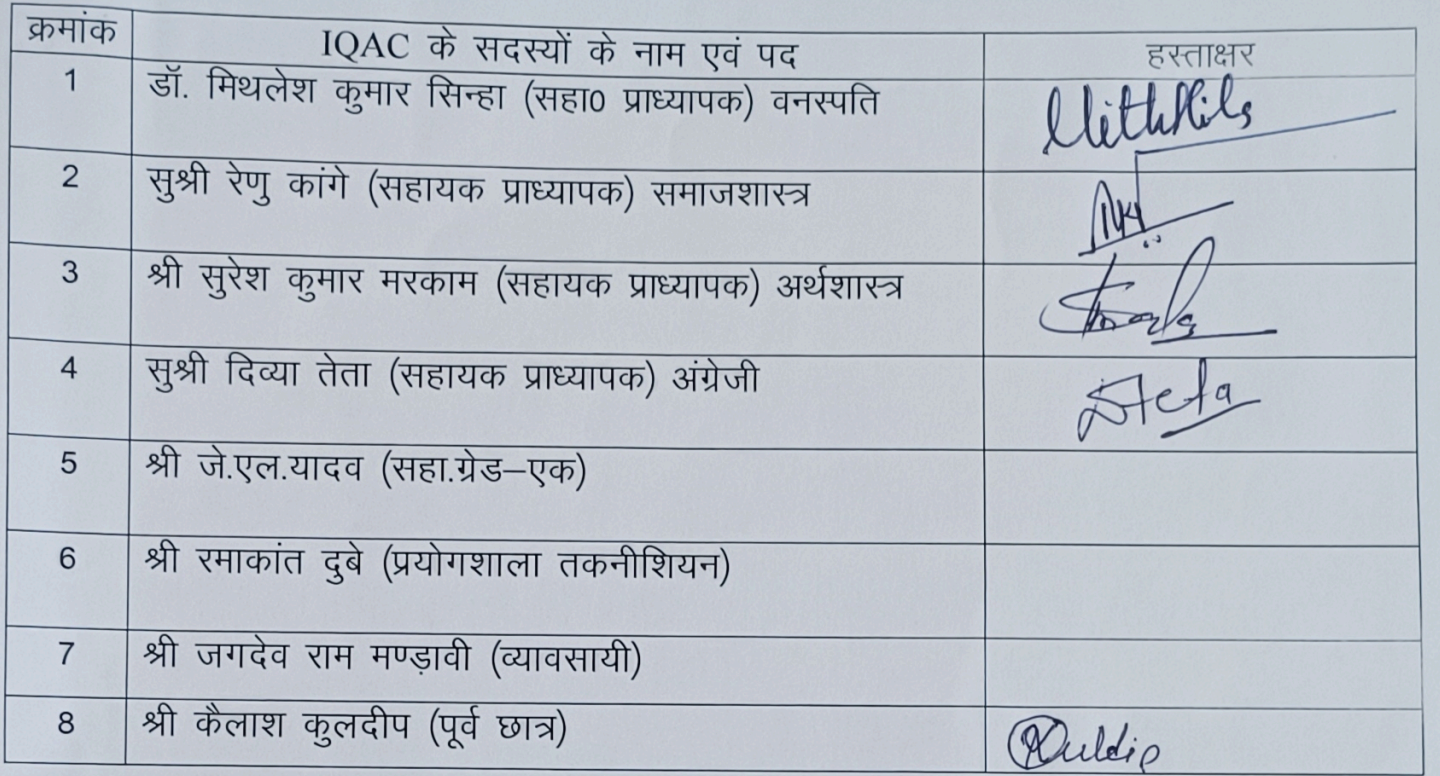 क्रमांक IQAC के सदस्यों के नाम एवं पद हस्ताक्षर
1 डॉ. मिथलेश कुमार सिन्हा (सहा0 प्राध्यापक) वनस्पति
2 सुश्री रेणु कांगे (सहायक प्राध्यापक) समाजशास्त्र
3 श्री सुरेश कुमार मरकाम (सहायक प्राध्यापक) अर्थशास्त्र
4 सुश्री दिव्या तेता (सहायक प्राध्यापक) अंग्रेजी
5 श्री जे.एल.यादव (सहा.ग्रेड–एक)
6 श्री रमाकांत दुबे (प्रयोगशाला तकनीशियन)
7 श्री जगदेव राम मण्ड़ावी (व्यावसायी)
8 श्री कैलाश कुलदीप (पूर्व छात्र) Kuldip